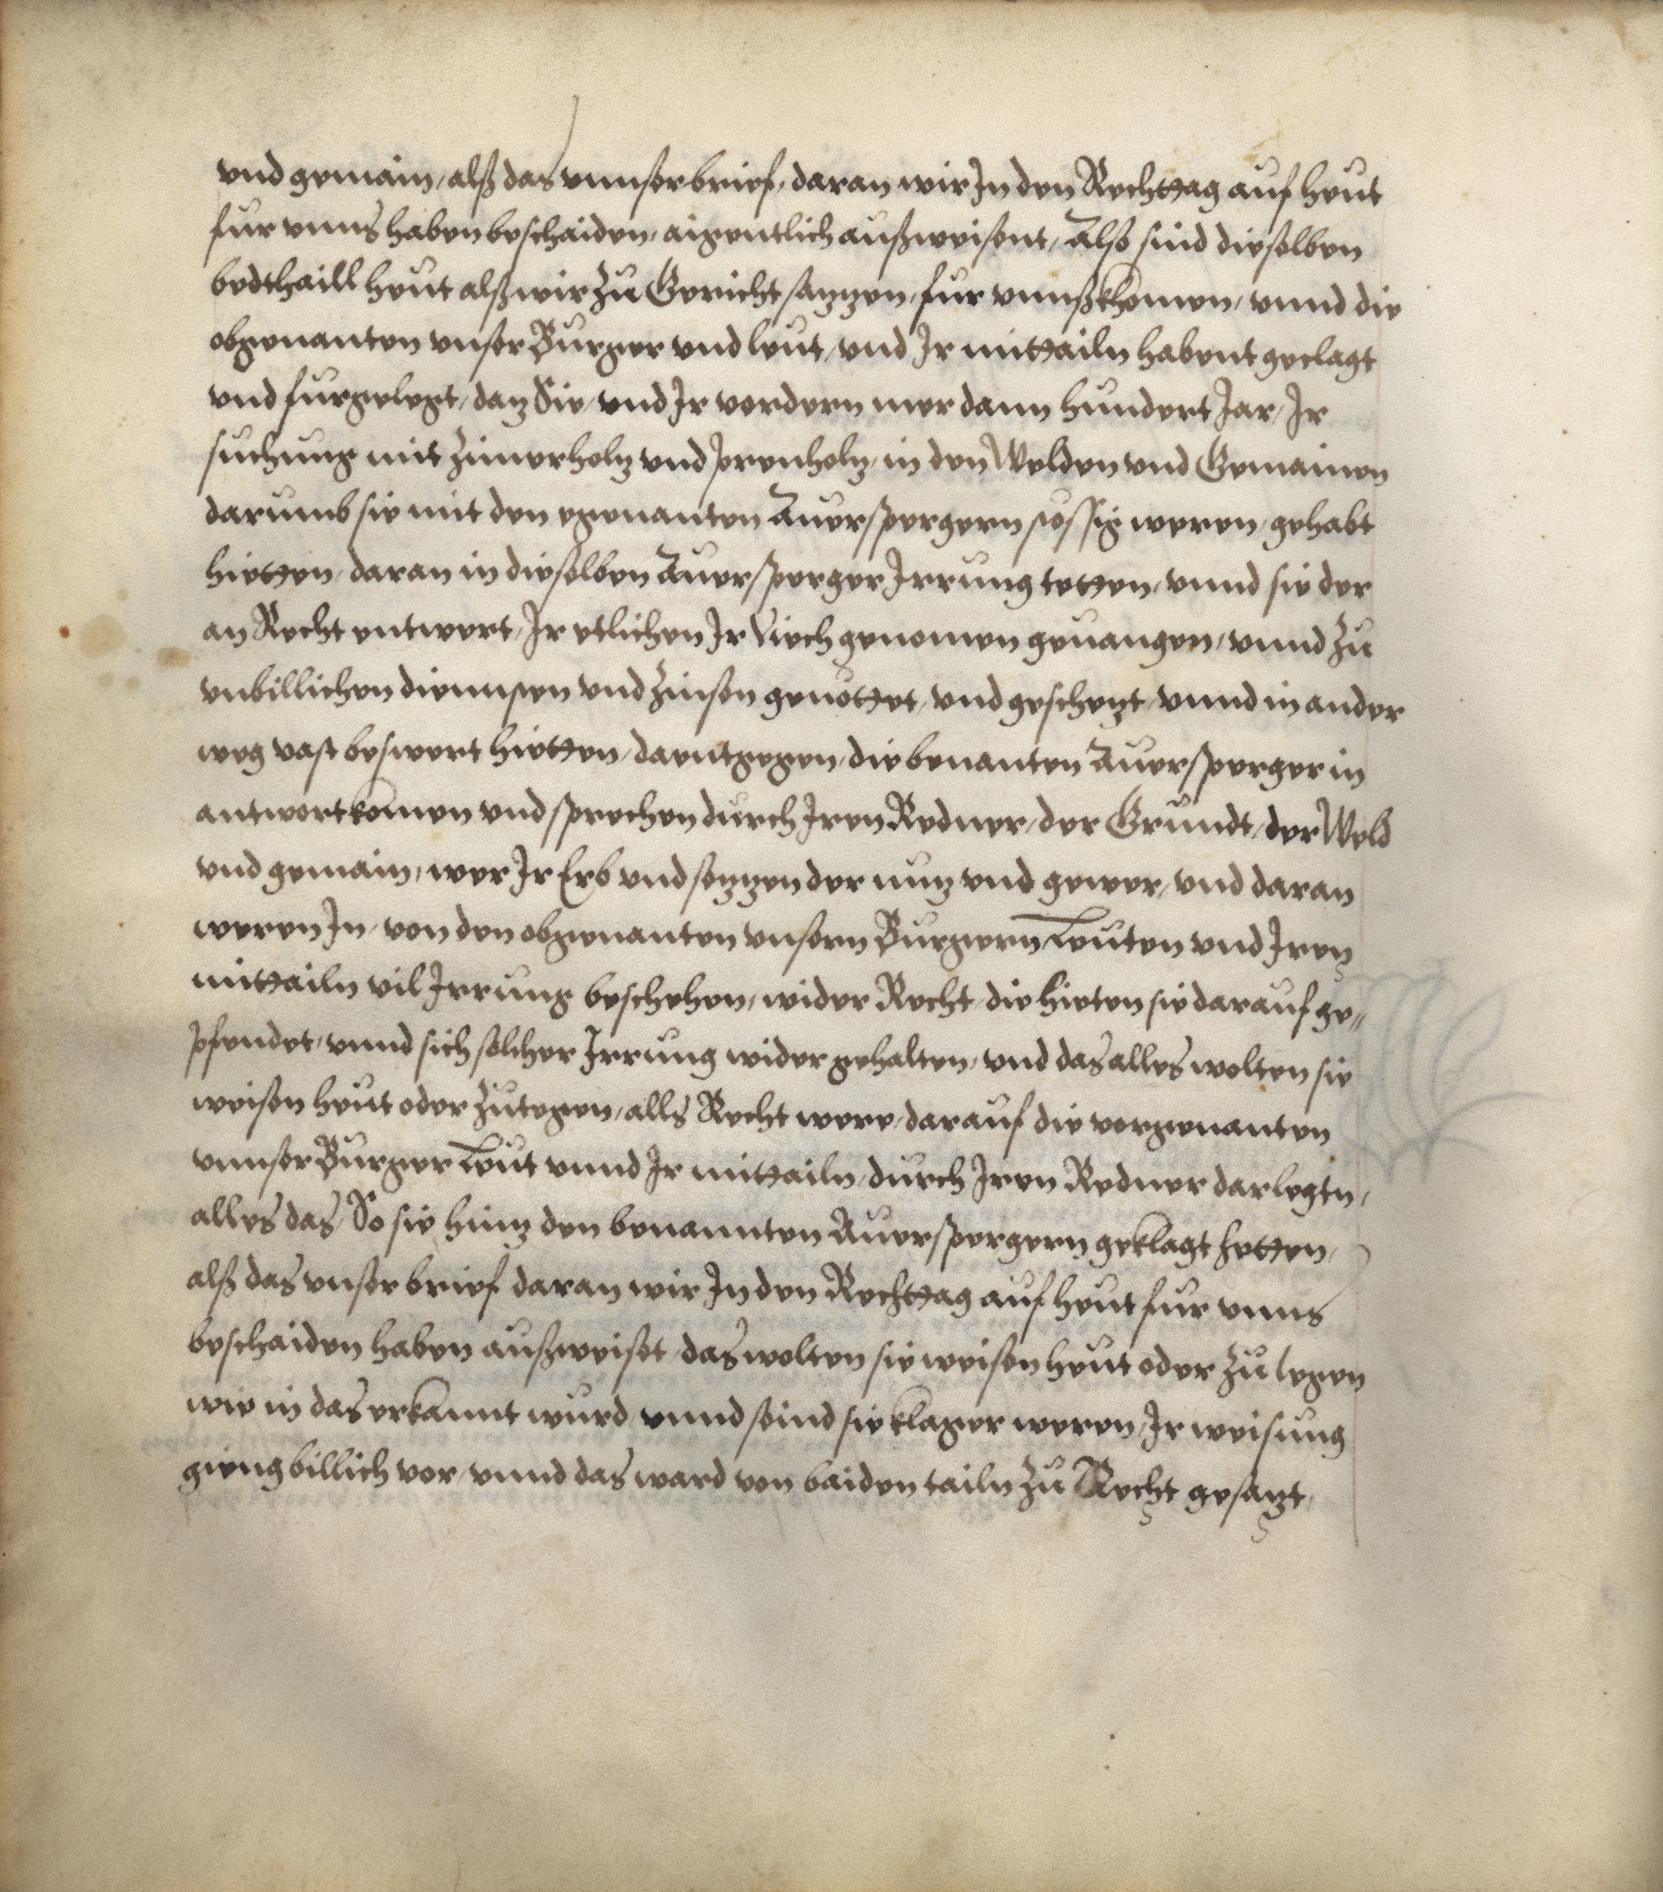 vnd gemain, alß das vnnser brief, daran wir In den Rechttag auf heut
fur vnns haben beschaiden, aigentlich außweisent, Also sind dieselben
bedthaill heut alß wir zu Gericht sazzen, fur vnnß khomen, vnnd die
obgenanten vnser Burger vnd leut, vnd Ir mittailn habent geclagt
vnd furgelegt, daz Sie vnd Ir vordern mer dann hundert Jar, Ir
suchung mit zimerholz vnd prenholz, in den Welden vnd Gemainen
darumb sie mit den egenanten Auerspergern stossig weren, gehabt
hietten, daran in dieselben Auersperger Irrung tetten, vnnd sie der
an Recht entwert, Ir etlichen Ir Viech genomen geuangen, vnnd zu
vnbillichen diennsten vnd zinsen genöttet, vnd geschezt, vnnd in ander
weg vast beswert hietten, daentgegen, die benanten Auersperger in
antwort komen vnd sprechen durch Iren Redner, der Grundt, der Weld
vnd gemain, wer Ir Erb vnd sezzen der nuz vnd gewer, vnd daran
weren In, von den obgenanten vnsern Burgern Leuten vnd Iren
mittailn vil Irrung beschehen, wider Recht, die hieten sie darauf ge„
pfendet, vnnd sich solcher Irrung wider gehalten, vnd das alles wolten sie
weisen heut oder zu tegen, alls Recht were, darauf die vorgenanten
vnnser Burger Leut vnnd Ir mittailn, durch Iren Redner darlegtn,
alles das, So sie hinz den benannten Auerspergern geklagt hetten,
alß das vnser brief daran wir In den Rechttag auf heut fur vnns
beschaiden haben außweiset, das wolten sie weisen heut oder zu tegen
wie in das erkannt wurd, vnnd seind sie klager weren, Ir weisung
gieng billich vor, vnnd das ward von baiden tailn zu Recht gesazt,